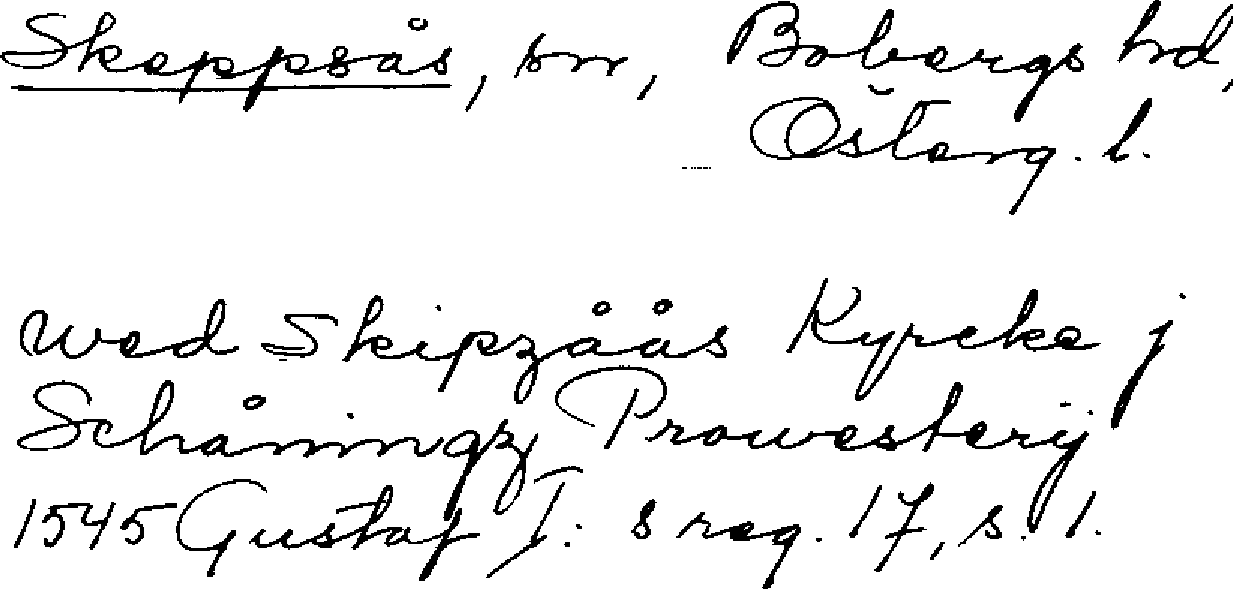 Skeppsås, sn, Bobergs hd,
Österg. l.
wed Skipzåås Kyrcke j
Schåningz Prowesterij
1545 Gustaf I:s reg. 17, s. 1.